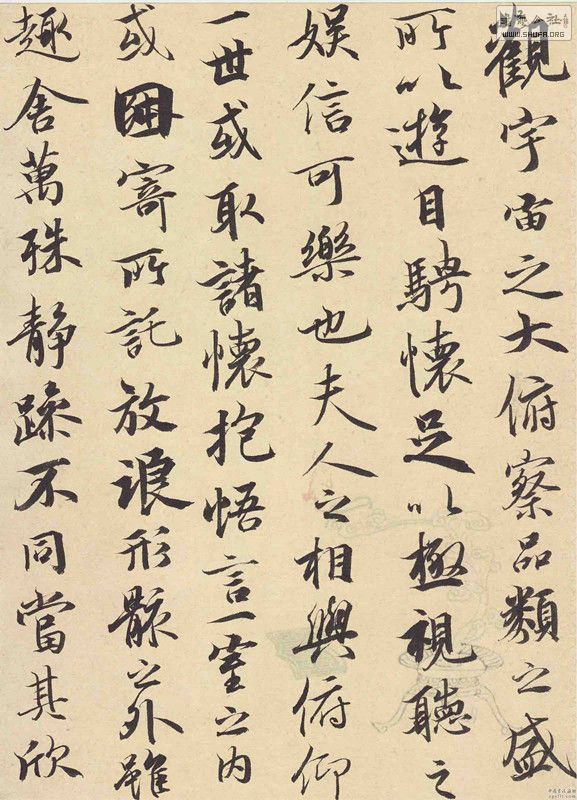 觀宇宙之大俯察品類之盛
所以遊目騁懷足以極視聽之
娛信可樂也夫人之相與俯仰
一世或取諸懷抱悟言一室之内
或因寄所託放浪形骸之外雖
趣舍萬殊静躁不同當其欣
公社
WWW.SHUFA.ORG